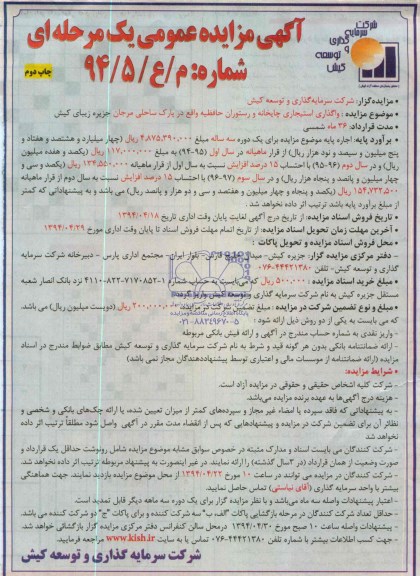 شرکت
سرمایه
گذاری
و توسعه
کیش
آگهی مزایده عمومی یک مرحله ای
شماره: م/ع/۹۴/۵
چاپ دوم
• مزایده‌گزار: شرکت سرمایه‌گذاری و توسعه کیش
• موضوع مزایده: واگذاری استیجاری چایخانه و رستوران حافظیه واقع در پارک ساحلی مرجان جزیره زیبای کیش
• مدت قرارداد: ۳۶ ماه شمسی
• برآورد پایه: اجاره پایه موضوع مزایده برای یک دوره سه ساله مبلغ ۴,۸۷۵,۳۹۰,۰۰۰ ریال (چهار میلیارد و هشتصد و هفتاد و
پنج میلیون و سیصد و نود هزار ریال) از قرار ماهیانه در سال اول (۹۵-۹۴) به مبلغ ۱۱۷,۰۰۰,۰۰۰ ریال (یکصد و هفده میلیون
ریال) و در سال دوم (۹۶-۹۵) با احتساب ۱۵ درصد افزایش نسبت به سال اول از قرار ماهیانه ۱۳۴,۵۵۰,۰۰۰ ریال (یکصد و سی و
چهار میلیون و پانصد و پنجاه هزار ریال) و در سال سوم (۹۷-۹۶) با احتساب ۱۵ درصد افزایش نسبت به سال دوم از قرار ماهیانه
۱۵۴,۷۳۲,۵۰۰ ریال (یکصد و پنجاه و چهار میلیون و هفتصد و سی و دو هزار و پانصد ریال) می باشد. و به پیشنهاداتی که کمتر
از مبلغ برآورد پایه باشد ترتیب اثر داده نخواهد شد.
• تاریخ فروش اسناد مزایده: از تاریخ درج آگهی لغایت پایان وقت اداری تاریخ ۱۳۹۴/۰۴/۱۸
• آخرین مهلت زمان تحویل اسناد مزایده: از تاریخ اتمام مهلت فروش اسناد تا پایان وقت اداری مورخ ۱۳۹۴/۰۴/۲۹
• محل فروش اسناد مزایده و تحویل پاکات:
- دفتر مرکزی مزایده گزار: جزیره کیش- میدان خلیج فارس- بلوار ایران- مجتمع اداری پارس - دبیرخانه شرکت سرمایه
گذاری و توسعه کیش- تلفن ۴۴۴۲۱۳۸۰-۰۷۶
• مبلغ خرید اسناد مزایده: ۵۰۰,۰۰۰ ریال که می‌بایست به حساب شماره نزد بانک انصار شعبه
مستقل جزیره کیش به نام شرکت سرمایه گذاری و توسعه کیش واریز گردد.
• مبلغ و نوع تضمین شرکت در مزایده: مبلغ تضمین شرکت در مزایده ۲۰۰,۰۰۰,۰۰۰ ریال (دویست میلیون ریال) می باشد،
که می بایست به یکی از دو روش ذیل ارائه شود:
- واریز نقدی به شماره حساب مندرج در آگهی و ارائه فیش بانکی مربوطه
- ارائه ضمانتنامه بانکی بدون هر گونه قید و شرط به نام شرکت سرمایه گذاری و توسعه کیش مطابق ضوابط مندرج در اسناد
مزایده (ارائه ضمانتنامه از موسسات مالی و اعتباری توسط پیشنهاددهندگان مجاز نمی باشد)
• شرایط مزایده:
- شرکت کلیه اشخاص حقیقی و حقوقی در مزایده آزاد است.
- هزینه درج آگهی‌ها به عهده برنده مزایده می‌باشد.
- به پیشنهاداتی که فاقد سپرده یا امضاء، غیر مجاز و سپرده‌های کمتر از میزان تعیین شده، یا ارائه چک‌های بانکی و شخصی و
نظائر آن برای تضمین شرکت در مزایده و پیشنهادهایی که پس از انقضاء مدت مقرر در آگهی واصل شود مطلقاً ترتیب اثر داده
نخواهد شد
- شرکت کنندگان می بایست اسناد و مدارک مثبته در خصوص سوابق مشابه موضوع مزایده شامل رونوشت حداقل یک قرارداد و
صورت وضعیت از همان قرارداد (در ۳ سال گذشته) را ارائه نمایند. در غیر اینصورت به پیشنهاد مربوطه ترتیب اثر داده نخواهد شد.
- شرکت کنندگان در مزایده می توانند در ساعت ۱۰ مورخ ۱۳۹۴/۰۴/۲۲ از محل موضوع مزایده بازدید نمایند. جهت هماهنگی
بیشتر با واحد سرمایه گذاری (آقای نیاستی) تماس حاصل نمایید.
- اعتبار پیشنهادات واصله سه ماه می‌باشد و با نظر مزایده گزار برای یک دوره سه ماهه دیگر قابل تمدید است.
- حداقل تعداد شرکت کنندگان در مرحله بازگشایی پاکات "الف، ب" سه شرکت کننده و برای پاکات "ج" دو شرکت کننده می باشد.
- پیشنهادات واصله ساعت ۱۰ صبح مورخ ۱۳۹۴/۰۴/۳۰ در محل سالن کنفرانس دفتر مرکزی مزایده گزار بازگشائی خواهد شد.
- جهت کسب اطلاعات بیشتر با شماره تلفن ۴۴۴۲۱۳۸۰-۰۷۶ تماس یا به سایت www.kish.ir مراجعه فرمایید.
شرکت سرمایه گذاری و توسعه کیش